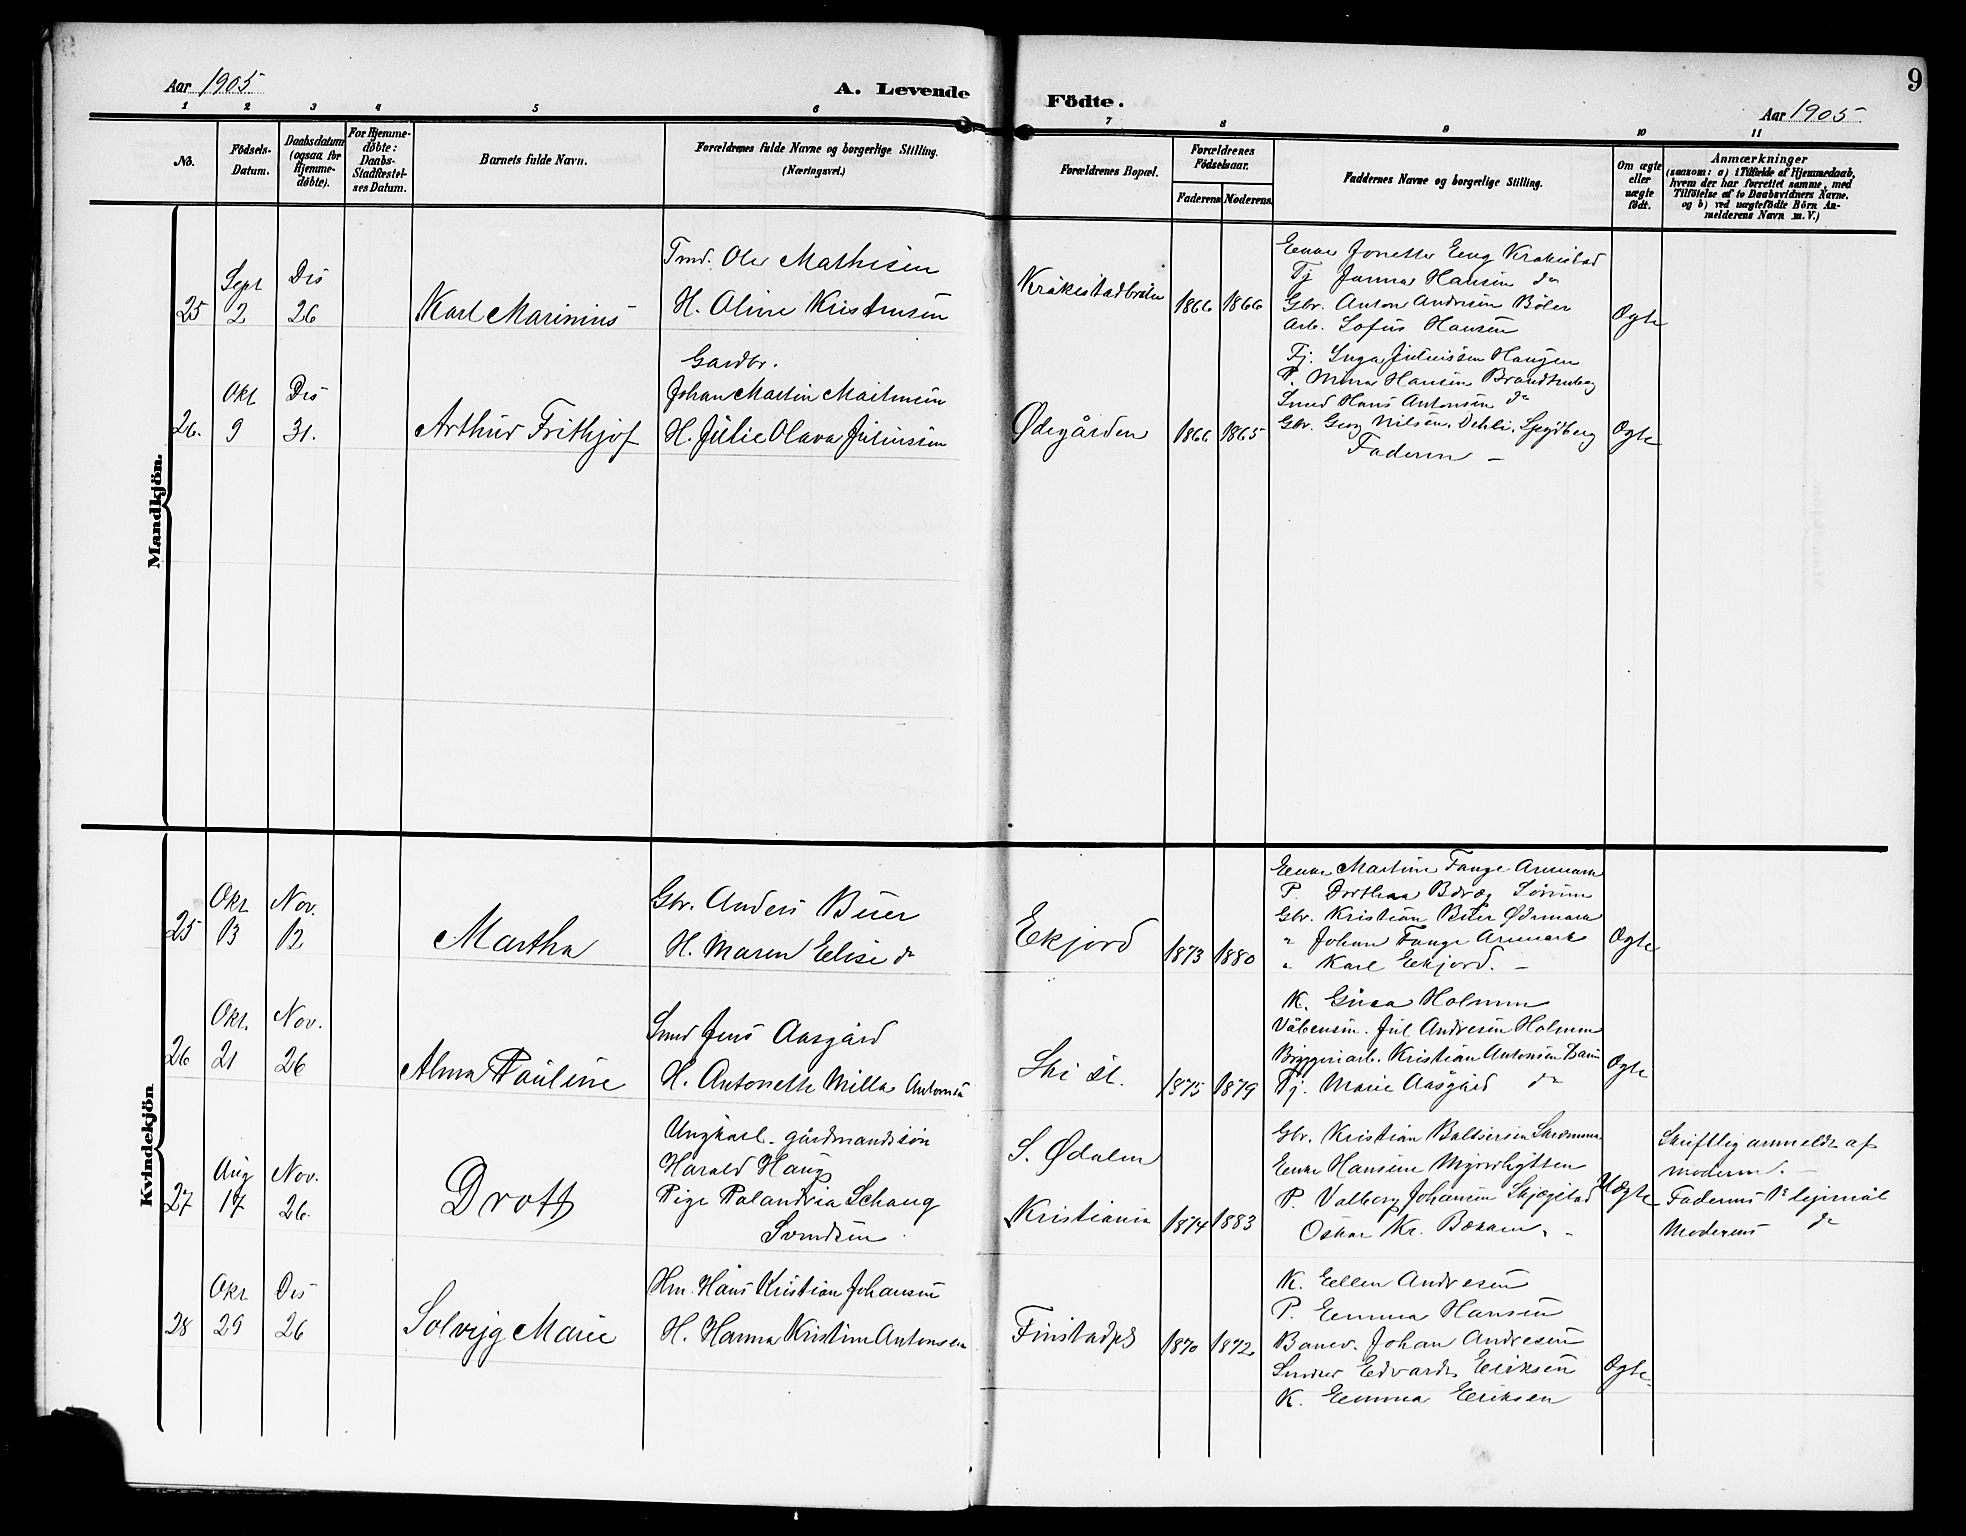 Aar 1905
A. Levende
Födte.
Aar 1905
9
1 2 3 4 5 6 7 8 9 10 11
No.
Födsels-
Datum.
Daabsdatum
(ogsaa for
Hjemme-
døbte).
For Hjemme-
døbte:
Daabs-
Stadfæstel-
ses Datum.
Barnets fulde Navn.
Forældrenes fulde Navne og borgerlige Stilling.
(Næringsvei.)
Forældrenes Bopæl.
Forældrenes
Födselsaar.
Faderens
Moderens
Faddernes Navne og borgerlige Stilling.
Om ægte
eller
uægte
födt.
Anmærkninger
(saasom: a) i Tilfælde af Hjemmedaab,
hvem der har forrettet samme, med
Tilföielse af to Daabsvidners Navne.
og b) ved uægtefödte Börn An-
melderens Navn m. V.)
Mandkjön.
25
Sept
2
Des
26
Karl Marinius
Ole Mathisen
H. Oline Kristensen
1866
1866
Enke Jonette Eng Krakestad
Tj Hansen do
Gbr. Anton Andresen Bøler
Arb. Sofus Hansen
Ægte
26.
Okt
9
Des
31.
Arthur Frithjof
Gardbr.
Johan Martin Martinsen
H. Julie Olava Juliussen
Ødegården
1866
1865
Tj. Inga Juliussen Haugen
P. Hansen
Smed Hans Antonsen do
Gbr. Georg Nilsen, Dehli, Spydberg
Faderen
Ægte
Kvindekjön
25
Okt
13
Nov.
12
Martha
Gbr. Anders Buer
H. Maren Elise do
Ekjord
1873
1880
Enke Martine Tange Aremark
P. Dorthea Sørum
Gbr. Kristian Buer Ødemark
" Johan Tange Aremark
" Karl Ekjord. -
Ægte
26
Okt.
21
Nov.
26
Alma Pauline
Smed Jens Aasgård
H. Antonette Milla Antonsen
Ski st.
1875
1879
K. Holmen
Våbensm. Jul Andresen Holmen
Bryggeriarb. Kristian Antonsen
Tj. Marie Aasgård do
Ægte
27
Aug
17
Nov.
26.
Drott
Ungkarl. gårdmandssøn
Harald Haug
Pige Palandria Schaug
Svendsen
S. Ødalen
Kristiania
1874
1883
Gbr. Kristian Baltsersen
Enke Hansine Myrerhytten
P. Valborg Johansen Skjegstad
Oskar Kr. "
Uægte
Skriftlig anmeldt af
moderen. -
Faderens 1ste lejermål
Moderens do
28
Okt
29
Des
26
Solveig Marie
Hm. Hans Kristian Johansen
H. Hanna Kristine Antonsen
Finstadpl
1870
1872
K. Ellen Andresen
P. Emma Hansen
Banev. Johan Andresen
Edvard Eriksen
K. Emma Eriksen
Ægte.